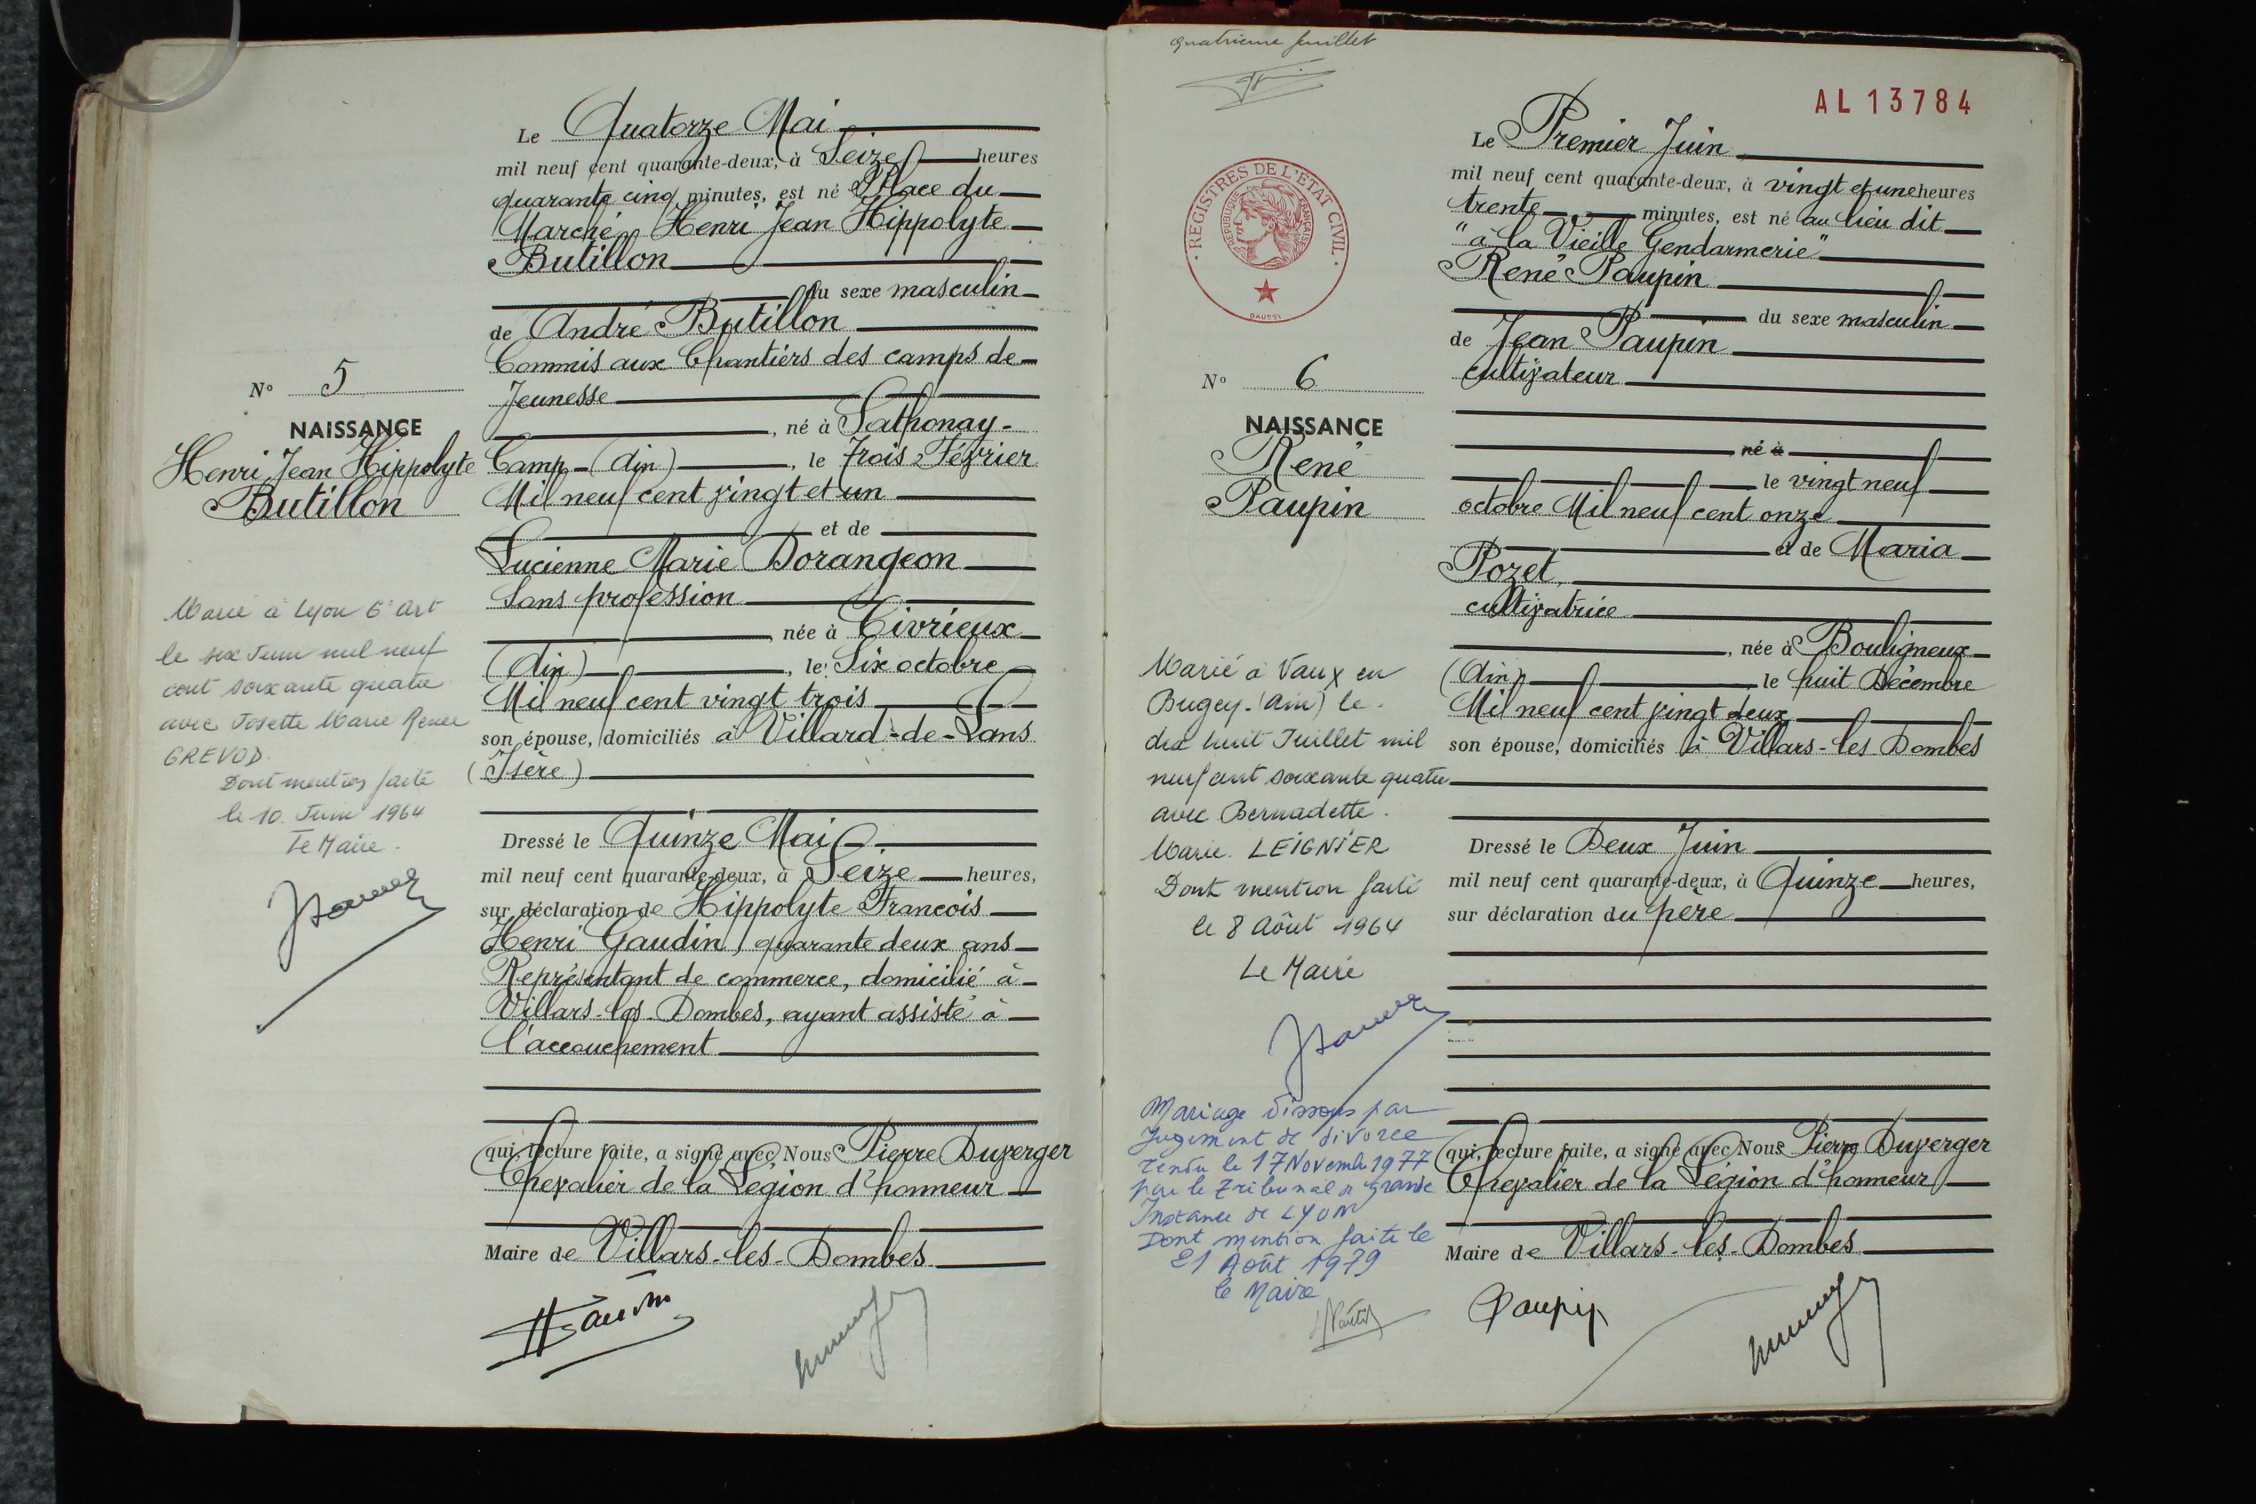 Le Quatorze Mai
mil neuf cent quarante-deux, à Seize heures
quarante cinq minutes, est né Place du
Marché, Henri Jean Hippolyte
Butillon
du sexe masculin
de André Butillon
Commis aux Chantiers des camps de
Jeunesse
, né à Sathonay-
Camp (Ain), le Trois Février
Mil neuf cent vingt et un
et de
Lucienne Marie Dorangeon
Sans profession
née à Civrieux
(Ain), le Six octobre
Mil neuf cent vingt trois
son épouse, domiciliés à Villard-de-Lans
(Isère)
Dressé le Quinze Mai
mil neuf cent quarante-deux, à Seize heures,
sur déclaration de Hippolyte François
Henri Gaudin, quarante deux ans
Représentant de commerce, domicilié à
Villars-les-Dombes, ayant assisté à
l'accouchement
qui, lecture faite, a signé avec Nous Pierre Duverger
Chevalier de la Légion d'honneur
Maire de Villars-les-Dombes
N° 5
NAISSANCE
Henri Jean Hippolyte
Butillon
Marié à Lyon 6e Art
le six Juin mil neuf
cent soixante quatre
avec Josette Marie Renée
GREVOD.
Dont mention faite
le 10. Juin 1964
Le Maire.
quatrieme feuillet
AL 13784
REGISTRES DE L'ETAT CIVIL
REPUBLIQUE FRANÇAISE
Le Premier Juin
mil neuf cent quarante-deux, à vingt et une heures
trente minutes, est né au lieu dit
"à la Vieille Gendarmerie"
René Paupin
du sexe masculin
de Jean Paupin
cultivateur
né à
le vingt neuf
octobre Mil neuf cent onze
et de Maria
Pozet,
cultivatrice
, née à Bouligneux
(Ain) le huit Décembre
Mil neuf cent vingt deux
son épouse, domiciliés à Villars-les-Dombes
Dressé le Deux Juin
mil neuf cent quarante-deux, à Quinze heures,
sur déclaration du père
qui, lecture faite, a signé avec Nous Pierre Duverger
Chevalier de la Légion d'honneur
Maire de Villars-les-Dombes
Paupin
N° 6
NAISSANCE
René
Paupin
Marié à Vaux en
Bugey-(Ain) le.
dix huit Juillet mil
neuf cent soixante quatre
avec Bernadette.
Marie. LEIGNIER
Dont mention faite
le 8 Août 1964
Le Maire
Mariage dissous par
Jugement de divorce
rendu le 17 Novembre 1977
par le Tribunal de Grande
Instance de LYON
Dont mention faite le
21 Août 1979
le Maire